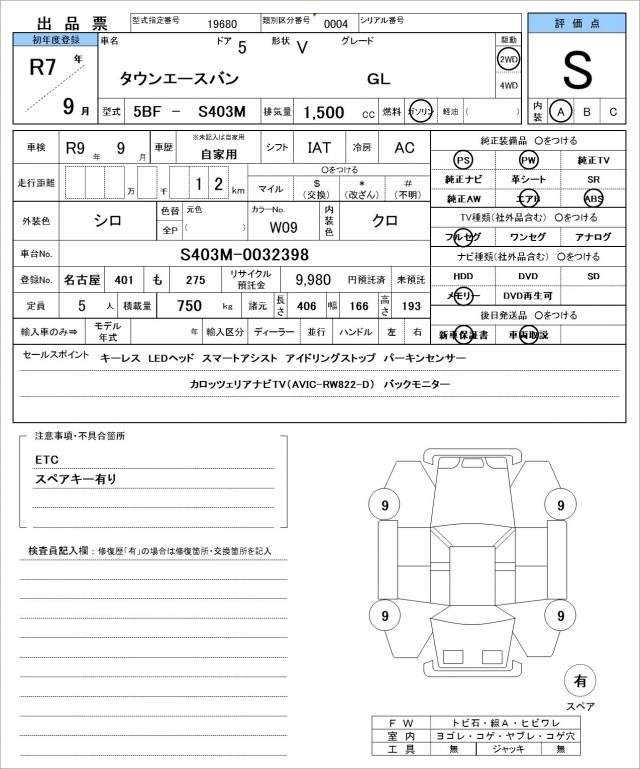 出品票 型式指定番号 19680 類別区分番号 0004 シリアル番号
評価点
S
内装 A B C
初年度登録 R7年 9月
車名 ドア 5 形状 V グレード
タウンエースバン GL
駆動 2WD 4WD
型式 5BF － S403M 排気量 1,500 cc 燃料 ガソリン 軽油 ( )
車検 R9年 9月 車歴 ※未記入は自家用 自家用 シフト IAT 冷房 AC
走行距離 万 千 1 2 km マイル $(交換) *(改ざん) #(不明) 〇をつける
外装色 シロ 色替 全P 元色 ( ) カラーNo. W09 内装色 クロ
車台No. S403M-0032398
登録No. 名古屋 401 も 275 リサイクル預託金 9,980 円預託済 未預託
定員 5 人 積載量 750 kg 諸元 長さ 406 幅 166 高さ 193
輸入車のみ⇒ モデル年式 年 輸入区分 ディーラー 並行 ハンドル 左 右
純正装備品 〇をつける
PS PW 純正TV
純正ナビ 革シート SR
純正AW エアB ABS
TV種類(社外品含む) 〇をつける
フルセグ ワンセグ アナログ
ナビ種類(社外品含む) 〇をつける
HDD DVD SD
メモリー DVD再生可
後日発送品 〇をつける
新車保証書 車両取説
セールスポイント キーレス LEDヘッド スマートアシスト アイドリングストップ パーキンセンサー
カロッツェリアナビTV(AVIC-RW822-D) バックモニター
注意事項・不具合箇所
ETC
スペアキー有り
検査員記入欄：修復歴「有」の場合は修復箇所・交換箇所を記入
9 9
9 9
有
スペア
FW トビ石・線A・ヒビワレ
室内 ヨゴレ・コゲ・ヤブレ・コゲ穴
工具 無 ジャッキ 無